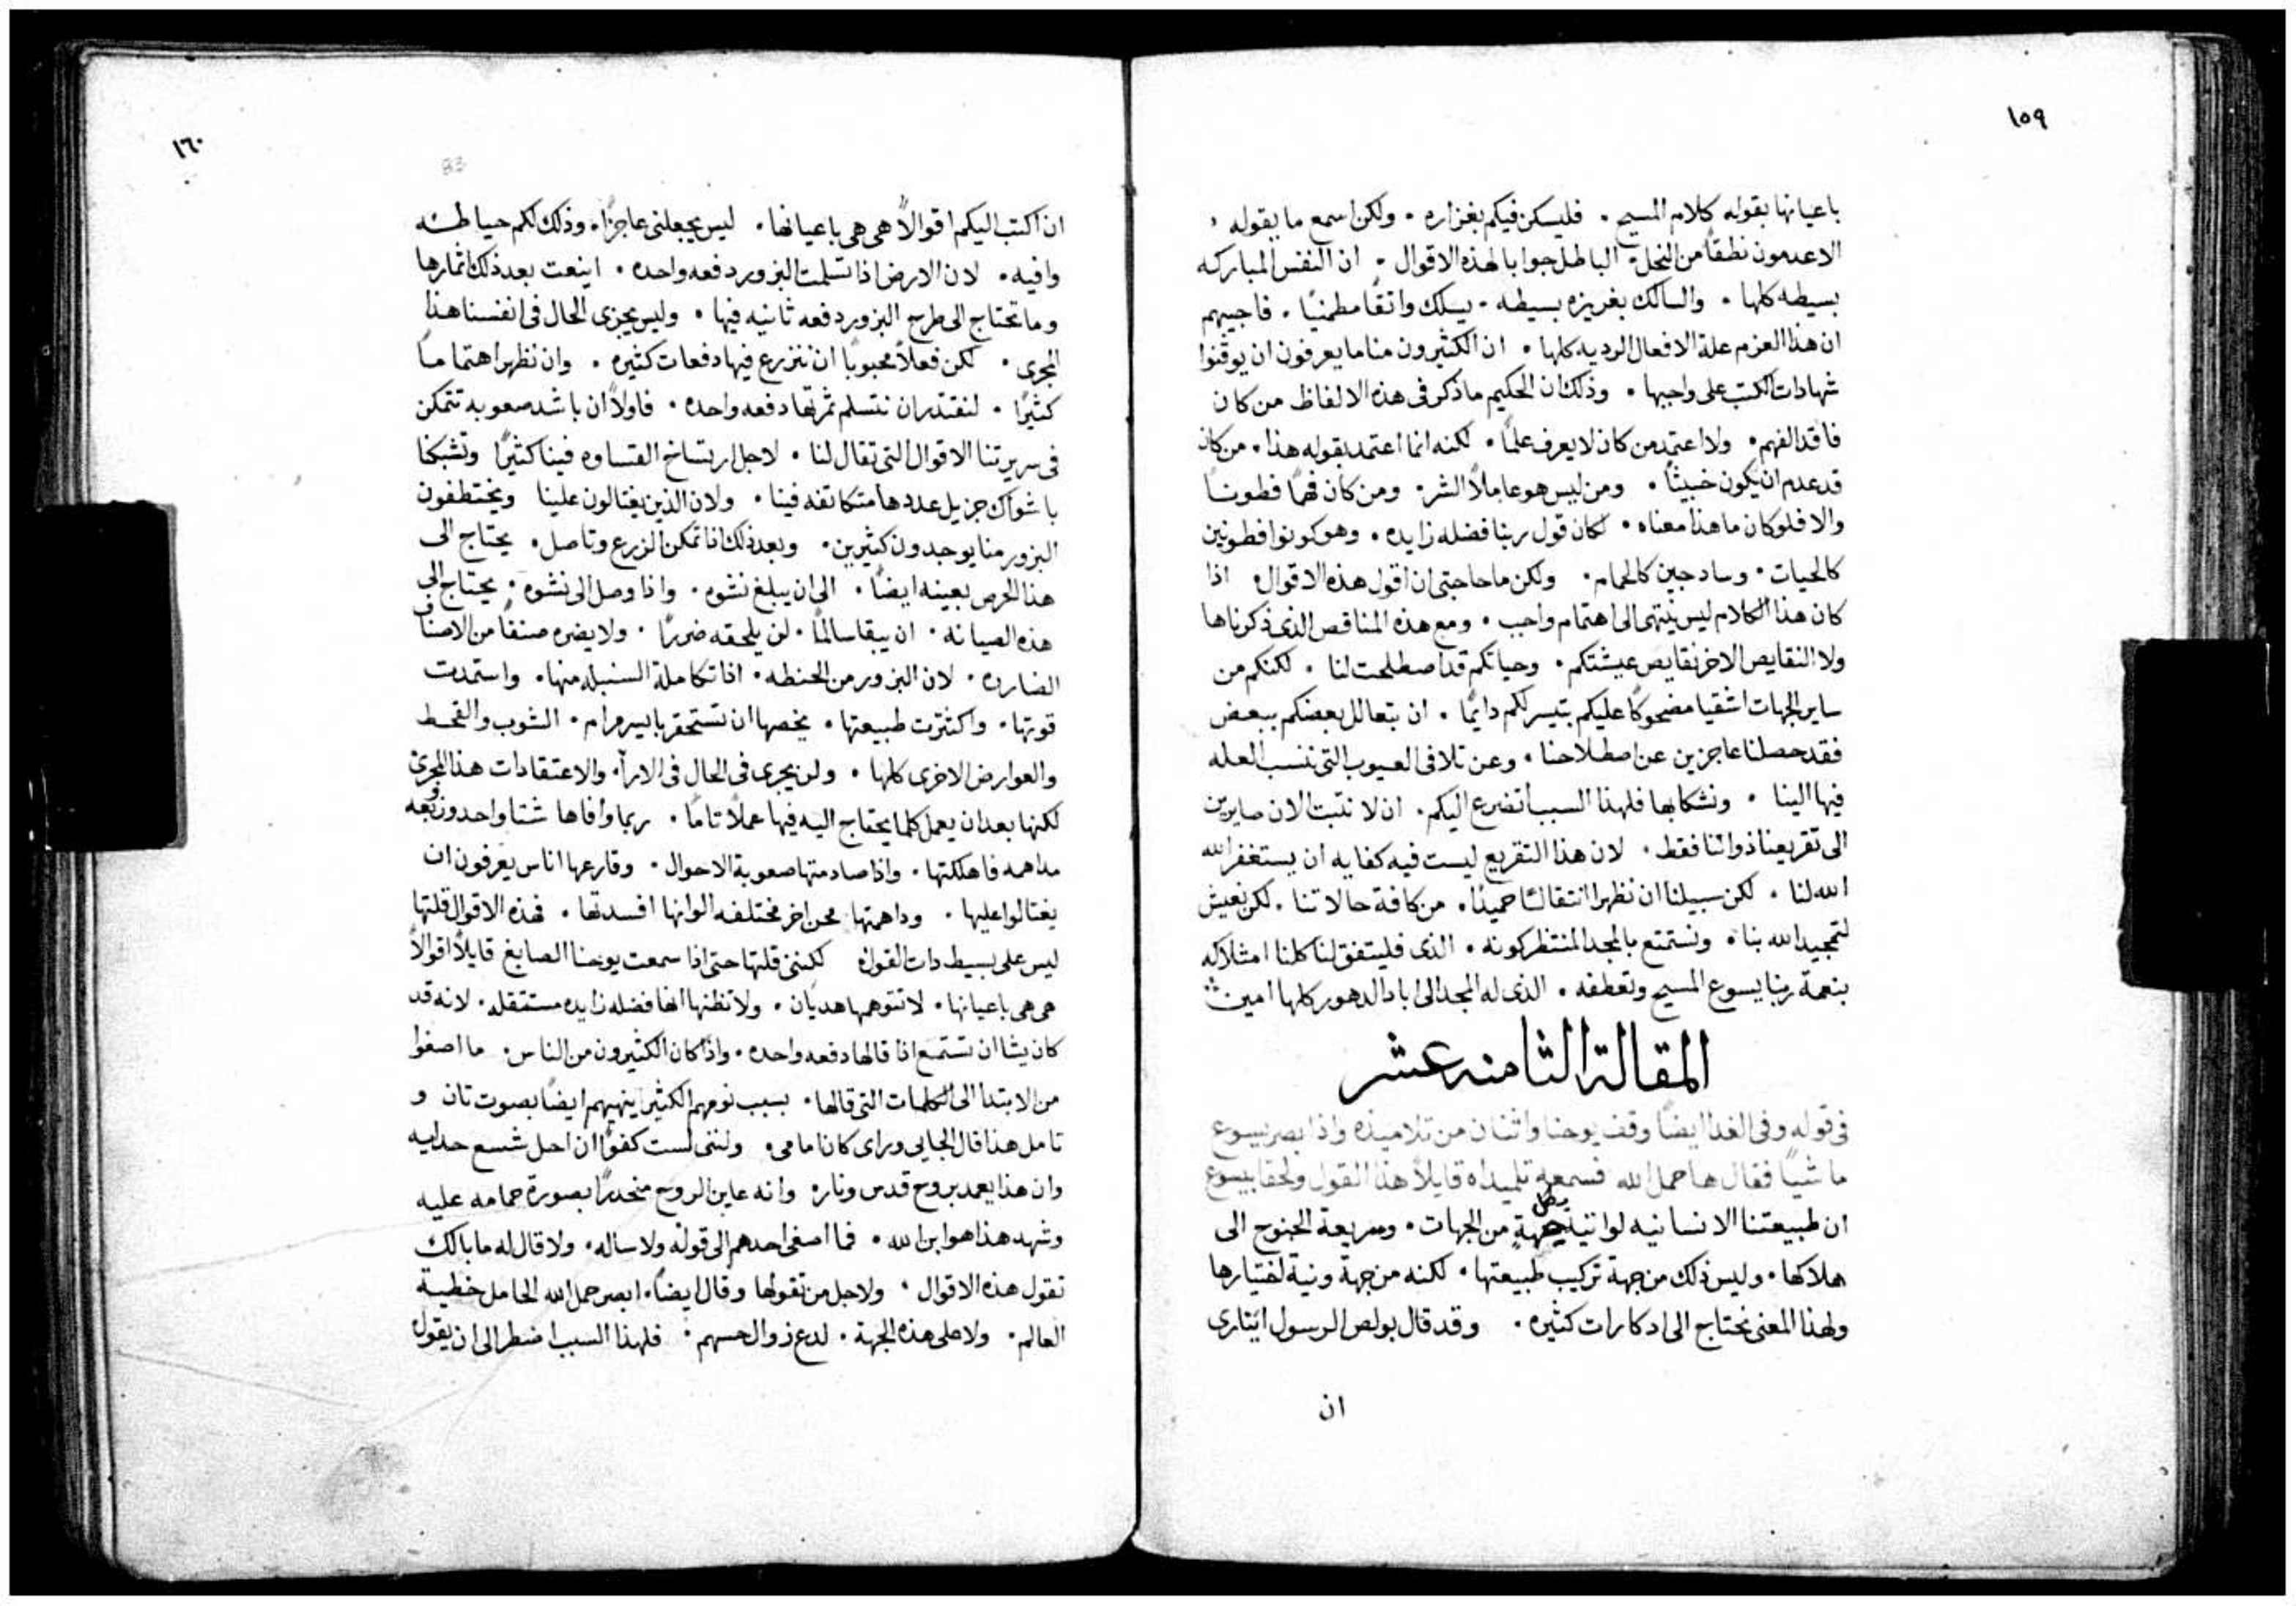 ١٥٩
باعيانها بقوله كلام المسيح . فليسكن فيكم بغزاره . ولكن اسمع ما يقوله
الاعدمون نطقاً من النحل الباطله جوابا لهذه الاقوال . ان النفس المباركه
بسيطه كلها . والسالك بغريزه بسيطه . يسلك واثقاً مطمنيًا . فاجيبهم
ان هذا العزم علة الافعال الرديه كلها . ان الكثيرون منا ما يعرفون ان يوقنوا
شهادات الكتب على واجبها . وذلك ان الحكيم ما ذكر في هذه الالفاظ من كان
فاقد الفهم . ولا اعتمد من كان لا يعرف علمًا . لكنه انما اعتمد بقوله هذا . من كان
قد عدم ان يكون خبيثًا . ومن ليس هو عاملاً الشر . ومن كان فهمًا فطونًا
والا فلو كان ما هذا معناه . لكان قول ربنا فضله زايده . وهو كونوا فطونين
كالحيات . وسادجين كالحمام . ولكن ما حاجتي ان اقول هذه الاقوال اذا
كان هذا الكلام ليس ينتهى الى اهتمام واجب . ومع هذه المناقص الذى ذكرناها
ولا النقايص الاخر نقايص عيشتكم . وحياتكم قد اصطلحت لنا . لكنكم من
ساير الجهات اشقيا مضحوكًا عليكم يتيسر لكم دايمًا . ان يتعالل بعضكم ببعض
فقد حصلنا عاجزين عن اصطلاحنا . وعن تلافى العيوب التى ننسب العله
فيها الينا . ونشكا بها فلهذا السبب اتضرع اليكم . ان لا نثبت الان صايرين
الى تقريعنا ذواتنا فقط . لان هذا التقريع ليست فيه كفايه ان يستغفر الله
الله لنا . لكن سبيلنا ان نظهر انتقالنا حميدًا . من كافة حالاتنا . لكى نعيش
لتمجيد الله بنا . ونستمتع بالمجد المنتظر كونه . الذى فليتفق لنا كلنا امتلاكه
بنعمة ربنا يسوع المسيح وتعطفه . الذى له المجد الى اباد الدهور كلها امين
المقالة الثامنه عشر
فى قوله وفى الغد ايضًا وقف يوحنا واثنان من تلاميذه واذا بصر يسوع
ماشيًا فقال ها حمل الله فسمعه تلميذاه قايلاً هذا القول ولحقا بيسوع
ان طبيعتنا الانسانيه لوانيه بكل جهة من الجهات . وسريعة الجنوح الى
هلاكها . وليس ذلك من جهة تركيب طبيعتها . لكنه من جهة ونية اختيارها
ولهذا المعنى نحتاج الى ادكارات كثيره . وقد قال بولص الرسول ايثارى
ان
١٦٠
83
ان اكتب اليكم اقوالاً هى هى باعيانها . ليس يجعلنى عاجزًا . وذلك لكم حياطه
وافيه . لان الارض اذا تسلمت البزور دفعه واحده . اينعت بعد ذلك اثمارها
وما تحتاج الى طرح البزور دفعه ثانيه فيها . وليس يجرى الحال فى انفسنا هذا
المجرى . لكن فعلاً محبوبًا ان ننزرع فيها دفعات كثيره . وان نظهر اهتمامًا
كثيرًا . لنقتدر ان نتسلم ثمرتها دفعه واحده . فاولاً ان باشد صعوبه تتمكن
فى سريرتنا الاقوال التى تقال لنا . لاجل ارتساخ القساوه فينا كثيرًا وتشبكنا
باشواك جزيل عددها متكاتفه فينا . ولان الذين يغتالون علينا ويختطفون
البزور منا يوجدون كثيرين . وبعد ذلك اذا تمكن الزرع وتاصل . يحتاج الى
هذا الحرص بعينه ايضًا . الى ان يبلغ نشوه . واذا وصل الى نشوه . يحتاج الى
هذه الصيانه . ان يبقا سالمًا . لن يلحقه ضررًا . ولا يضره صنفًا من الاصناف
الضاره . لان البزور من الحنطه . اذا تكاملة السنبله منها . واستمدت
قوتها . واكثرت طبيعتها . يخصها ان تستحقر بايسر مرام . الشوب والقحط
والعوارض الاخرى كلها . ولن يجرى فى الحال فى الارآ . والاعتقادات هذا المجرى
لكنها بعد ان يعمل كلما يحتاج اليه فيها عملاً تامًا . ربما وافاها شتا واحد وزوبعه
مداهمه فاهلكتها . واذا صادمتها صعوبة الاحوال . وقارعها اناس يعرفون ان
يغتالوا عليها . وداهمتها محن اخر مختلفه الوانها افسدتها . فهذه الاقوال قلتها
ليس على بسيط دات القول لكننى قلتها حتى اذا سمعت يوحنا الصابغ قايلاً اقوالاً
هى هى باعيانها . لا تتوهمها هديان . ولا تظنها انها فضله زايده مستثقله . لانه قد
كان يشا ان تستمع اذا قالها دفعه واحده . واذا كان الكثيرون من الناس . ما اصغوا
من الابتدا الى الكلمات التى قالها . بسبب نومهم الكثير ينهيهم ايضًا بصوت تان و
تامل هذا قال الجايى وراى كان امامى . واننى لست كفوًا ان احل شسع حدايه
وان هذا يعمد بروح قدس وناره وانه عاين الروح منحدرًا بصورة حمامه عليه
وشهد هذا هو ابن الله . فما اصغى احدهم الى قوله ولا ساله . ولا قال له ما بالك
تقول هذه الاقوال . ولاجل من تقولها وقال ايضًا . ابصر حمل الله الحامل خطية
العالم . ولا على هذه الجهة . لدع زوال حسهم . فلهذا السبب اضطر الى ان يقول